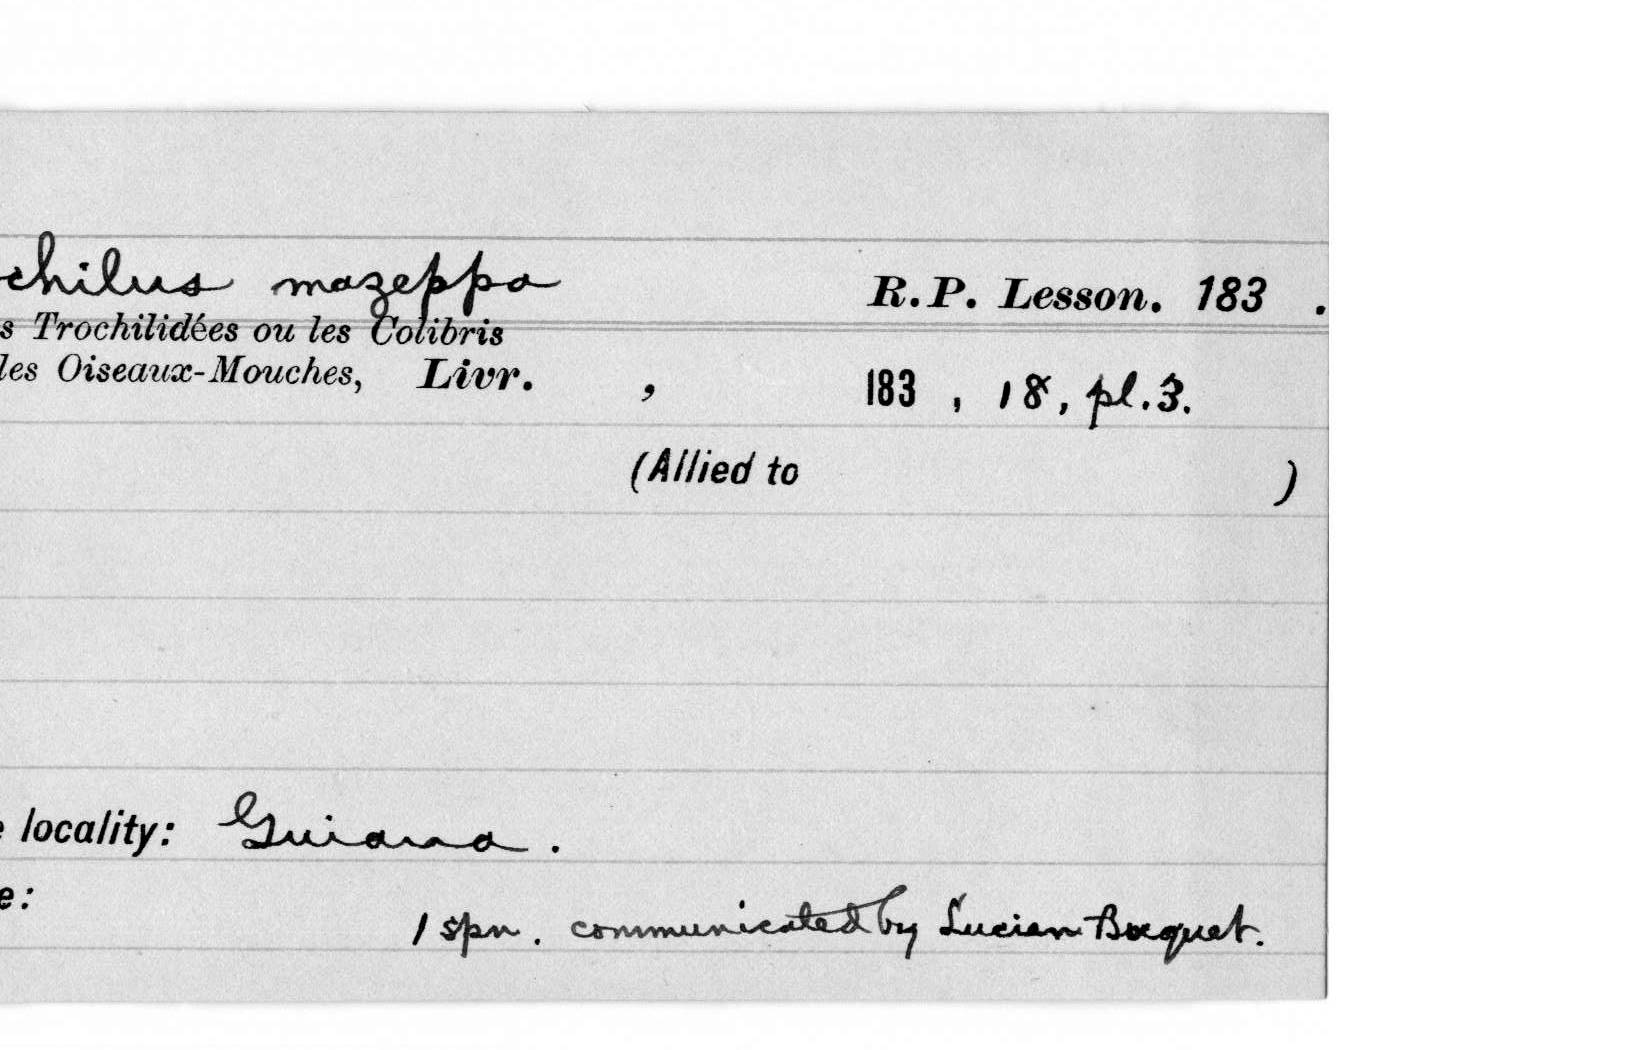 chilus mazeppa R.P. Lesson. 183 .
s Trochilidées ou les Colibris
les Oiseaux-Mouches, Livr. , 183 , 18, pl.3.
(Allied to )
locality: Guiana .
e:
1 spn. communicated by Lucien Bocquet.